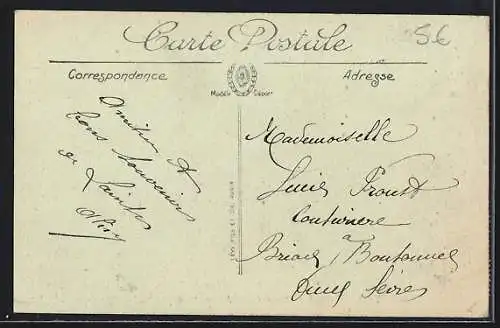 Carte Postale
5€
Correspondance
Adresse
Modèle Déposé
Amitiés et
bons souvenirs
de Saintes
Mademoiselle
Lucie Proust
Couturière
à
Brioux / Boutonne
Deux Sèvres